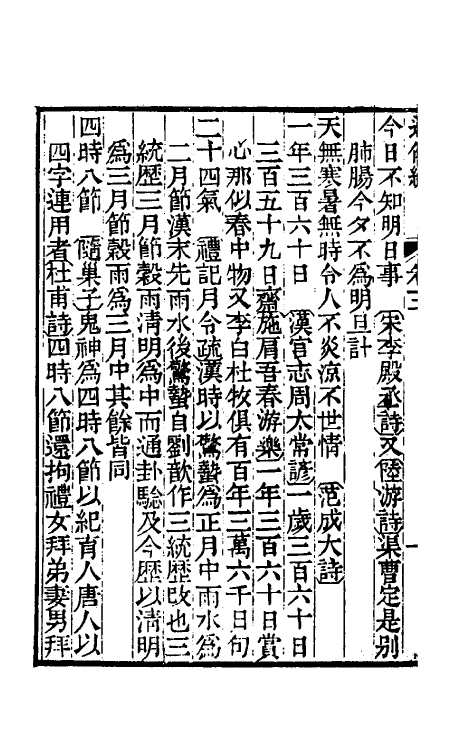 通俗編　卷三　一
今日不知明日事　宋李殿丞詩又陸游詩渠曹定是别
肺腸今夕不爲明旦計
天無寒暑無時令人不炎涼不世情　范成大詩
一年三百六十日　漢官志周太常諺一歲三百六十日
三百五十九日齋施肩吾春游樂一年三百六十日賞
心那似春中物又李白杜牧俱有百年三萬六千日句
二十四氣　禮記月令疏漢時以驚蟄爲正月中雨水爲
二月節漢末先雨水後驚蟄自劉歆作三統歷改也三
統歷三月節穀雨清明爲中而通卦驗及今歷以清明
爲三月節穀雨爲三月中其餘皆同
四時八節　隨巢子鬼神爲四時八節以紀育人唐人以
四字連用者杜甫詩四時八節還拘禮女拜弟妻男拜